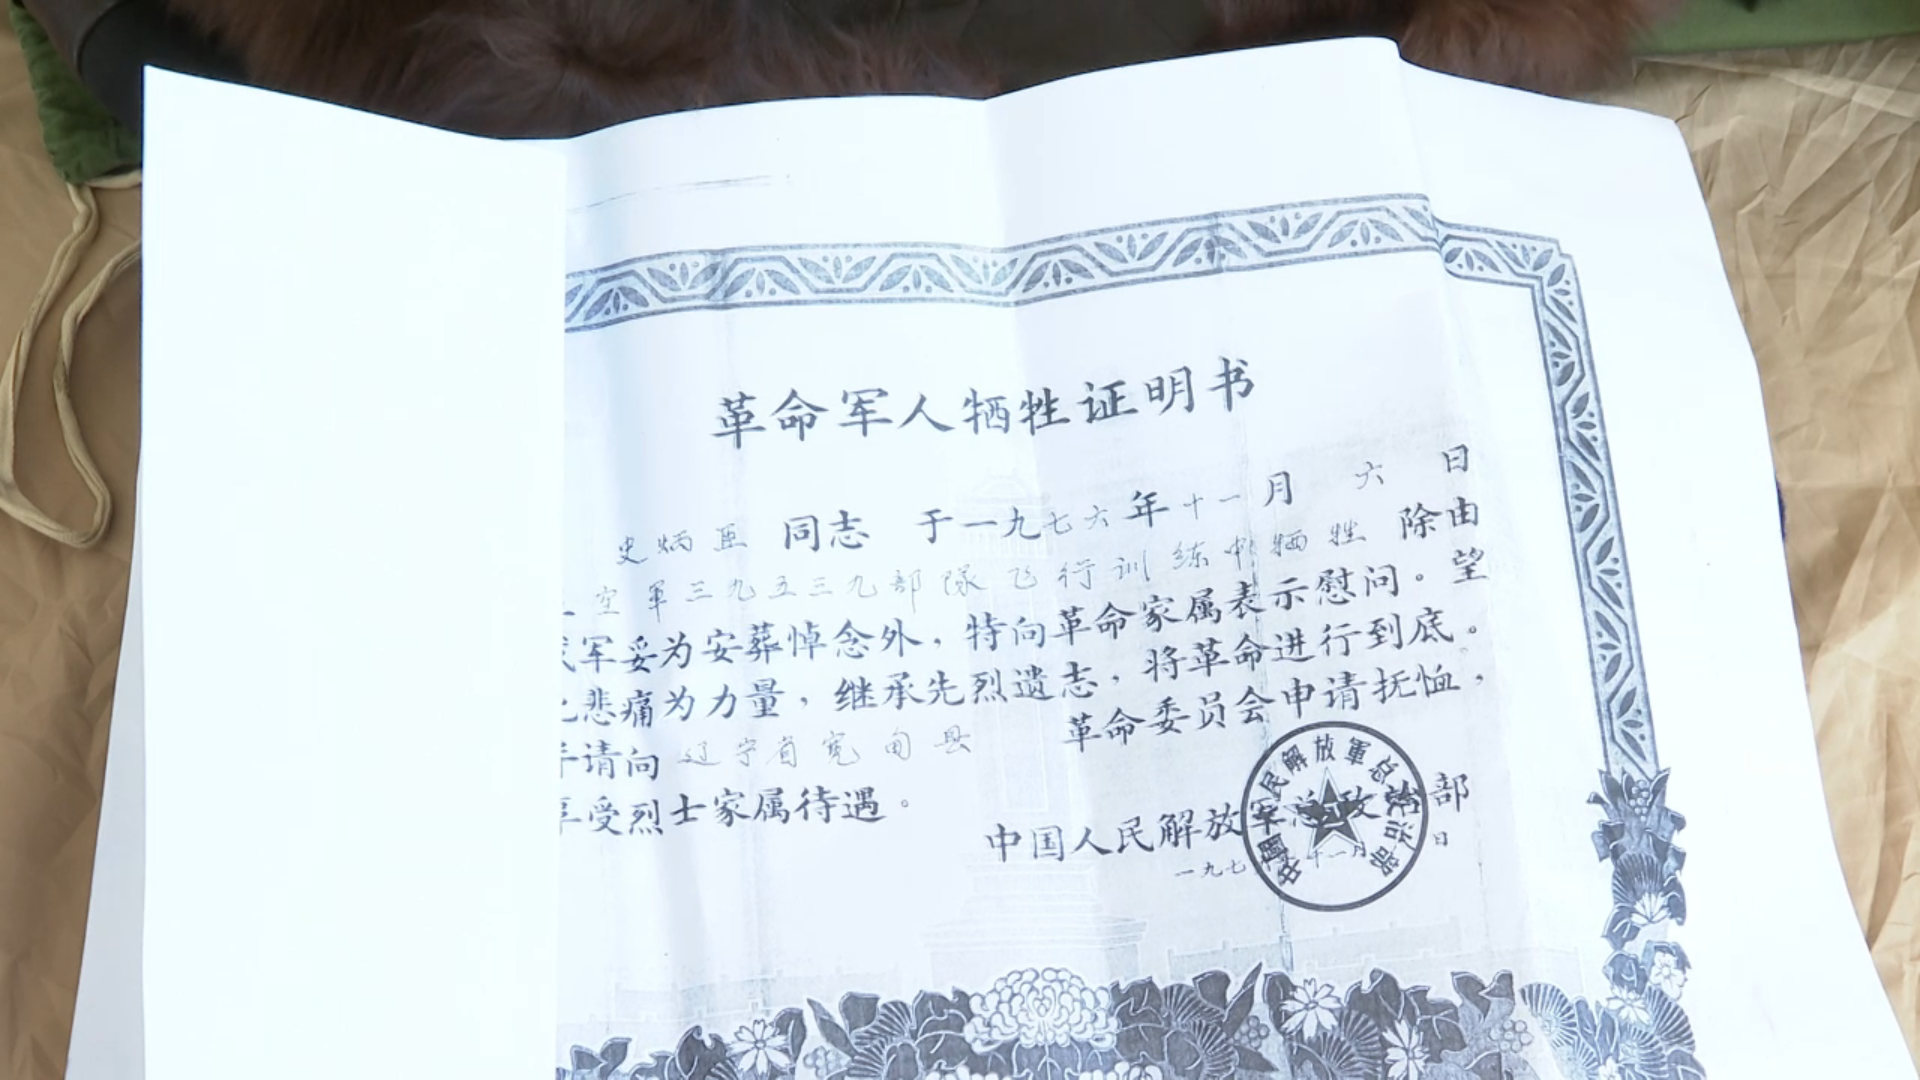 革命军人牺牲证明书
史炳 同志 于一九七六年十一月 六 日
空軍三九五三九部隊飞行训练中牺牲 除由
军妥为安葬悼念外，特向革命家属表示慰问。望
悲痛为力量，继承先烈遗志，将革命进行到底。
请向 辽宁省宽甸县 革命委员会申请抚恤，
享受烈士家属待遇。
中国人民解放军总政治部
一九七 十一月 日
中國人民解放軍总政治部